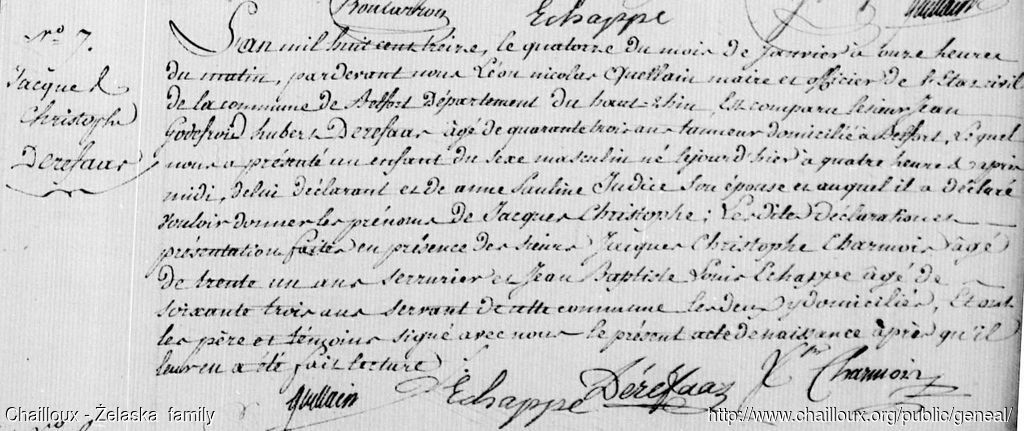 Echappe
Quellain
N.º 7.
Jacques
Christophe
Derefaas
L'an mil huit cent treize, le quatorze du mois de Janvier à onze heures
du matin, pardevant nous Léon nicolas Quellain maire et officier de l'Etat civil
de la commune de Belfort Département du haut-Rhin Est comparu le sieur Jean
Godefroid hubert Derefaas âgé de quarante trois ans tanneur domicilié à Belfort, Lequel
nous a présenté un enfant du sexe masculin né le jour d'hier à quatre heures après
midi, de lui déclarant et de anne Pauline Judice son épouse et auquel il a déclaré
vouloir donner les prénoms de Jacques Christophe; Lesdites déclaration et
présentation faites en présence des sieurs Jacques Christophe Charmois âgé
de trente un ans serrurier et Jean Baptiste Louis Echappe âgé de
soixante trois ans servant de cette commune les deux y domiciliés, Et ont
les père et témoins signé avec nous le présent acte de naissance après qu'il
leur en a été fait lecture
Quellain Echappe Dérefaas Charmois
Chailloux - Želaska family
http://www.chailloux.org/public/geneal/